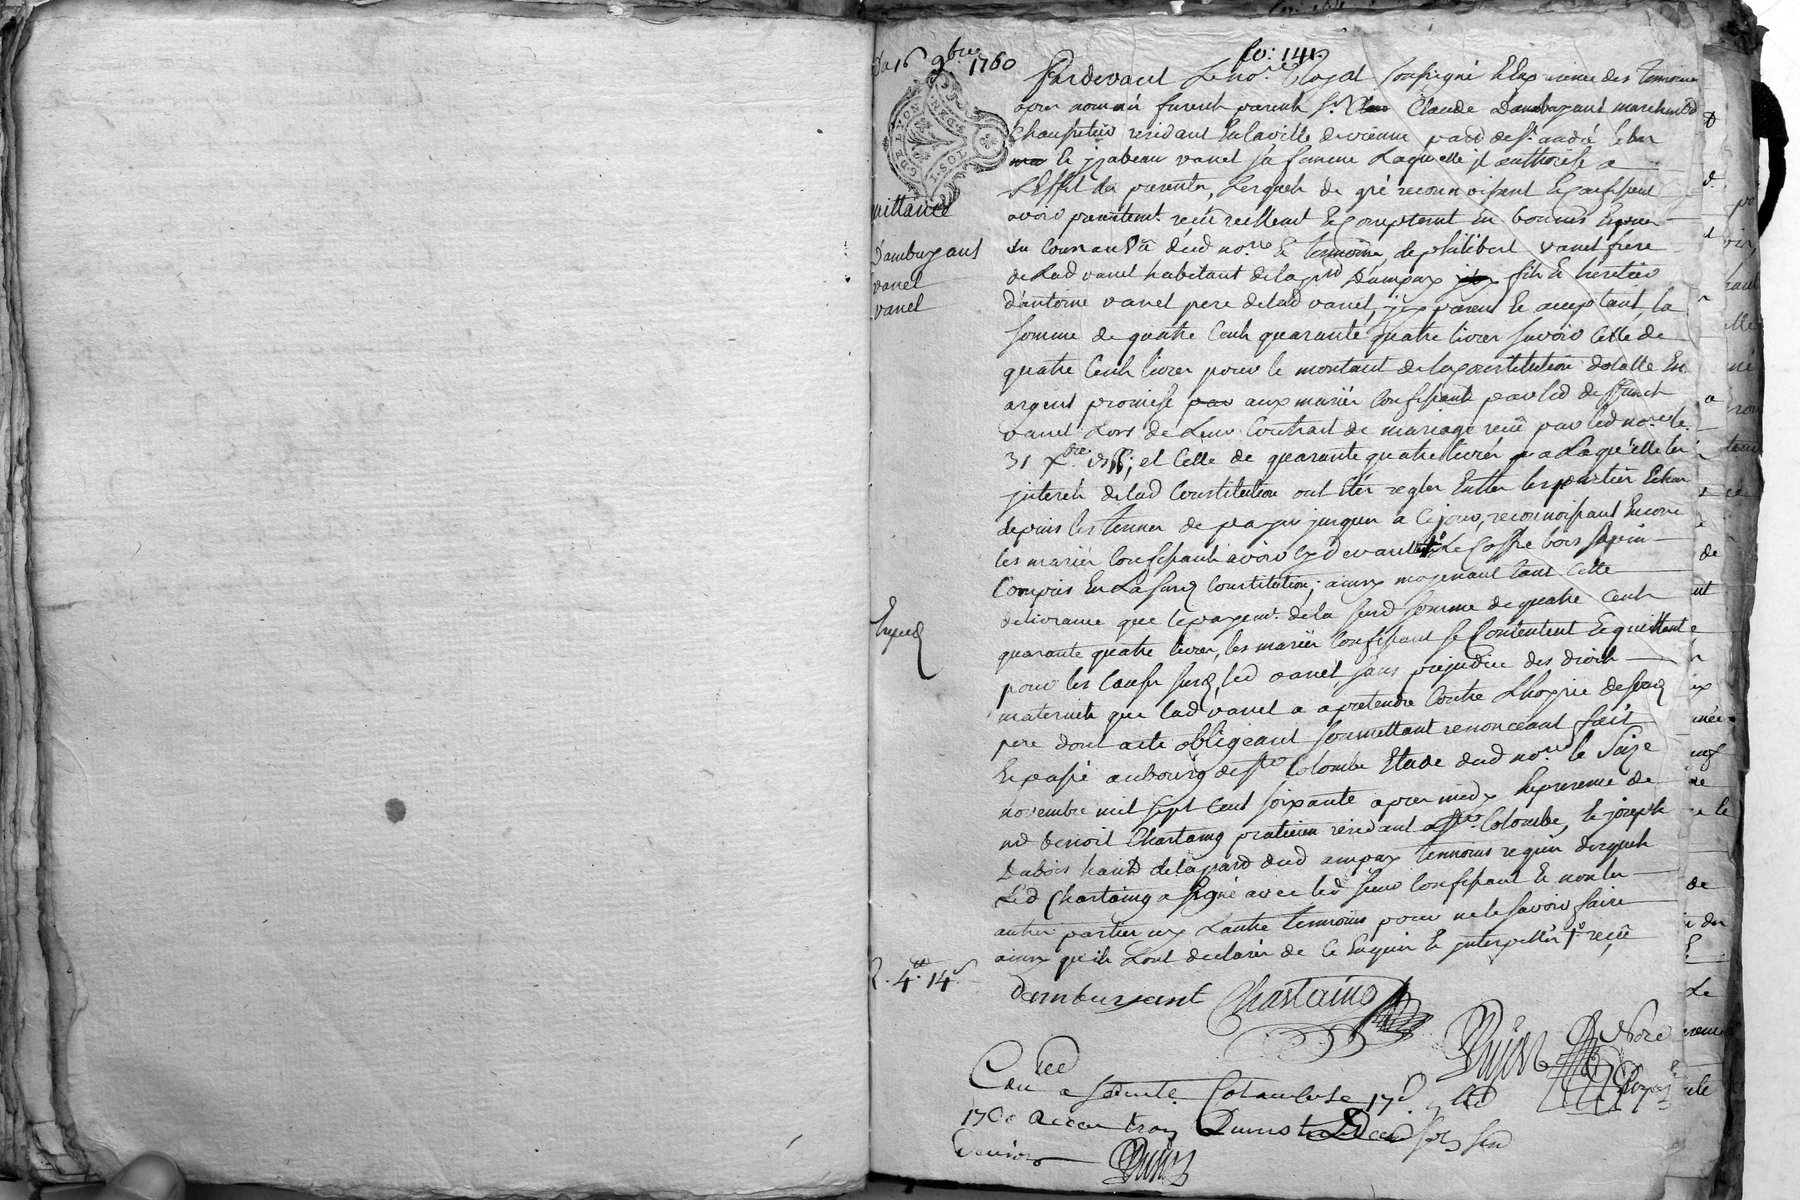 Du 16 9bre 1760
fo: 141
Pardevant Le nore Royal soussigné & En presence des temoins
apres nommés furent presents sr Claude Dambuyant marchand
Chaufretier residant En la ville de vienne parr de st andré le bas
& jzabeau vanel sa femme Laquelle jl authorise a
L'Effet des presentes, Lesquels de gré reconnoissent & confessent
avoir presentemt reçu reellement & comptant En bonnes Especes
du Cours au vû dud nore & temoins, de philibert vanel frere
de Lad vanel habitant de la prsse D'ampuy fils & heretier
d'antoine vanel pere de lad vanel, jcy present & acceptant, la
somme de quatre Cents quarante quatre livres savoir Celle de
quatre Cents livres pour le montant de la constitution dotalle En
argent promise aux mariés Confessants par led defunct
vanel Lors de Leur Contrat de mariage reçû par led nore le
31 Xbre; et Celle de quarante quatre livres a Laquelle les
jnterets de lad Constitution ont étés reglés Entre les parties Echus
depuis les termes de payer jusques a Ce jour, reconnoissant Encore
les mariés Confessants avoir cy devant Le Coffre bois sapin
Compris En La susd Constitution; ainsy moyenant tant Cette
delivrance que le payemt de la susd somme de quatre Cents
quarante quatre livres, les mariés Confessant se Contentent & quittent
pour les Causes susd led vanel, sans prejudice des droits
maternels que lad vanel a a pretendre Contre L'hoyrie de sond
pere dont acte obligeant soumettant renonceant fait
& passé au bourg de ste Colombe Etude dud nore le Seize
novembre mil sept Cent soixante apres midy En presence de
me benoit Chastaing praticien residant a ste Colombe, & joseph
Dubois habt de la parr dud ampuy temoins requis desquels
Led Chastaing a signé avec led sieur Confessant & non les
autres parties ny L'autre temoins pour ne le savoir faire
ainsy qu'ils L'ont declarés de Ce Enquis & jnterpellés
quittance
Dambuyant
vanel
vanel
Exped
R. 4tt. 14s
Dambuyant Chastaing
Nore
Royal
Contlee
a sainte Colombe 17
1760 Reçu trois